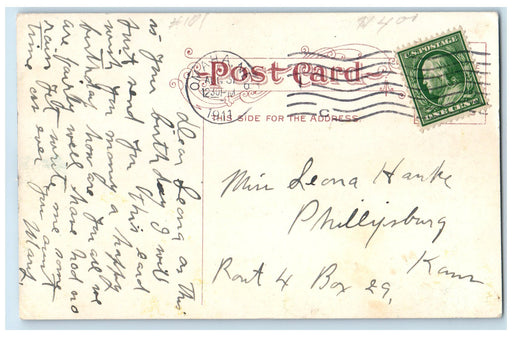 Dear Leona on this
is your birthday I will
just send you this card
wish you money a happy
birthday how are you all we
are fairly well have had no
rain yet write me some
time as ever your aunt
Mary
Post Card
THIS SIDE FOR THE ADDRESS
1911
U.S. POSTAGE
ONE CENT
Miss Leona Hanke
Phillipsburg
Kans
Rout 4 Box 29,